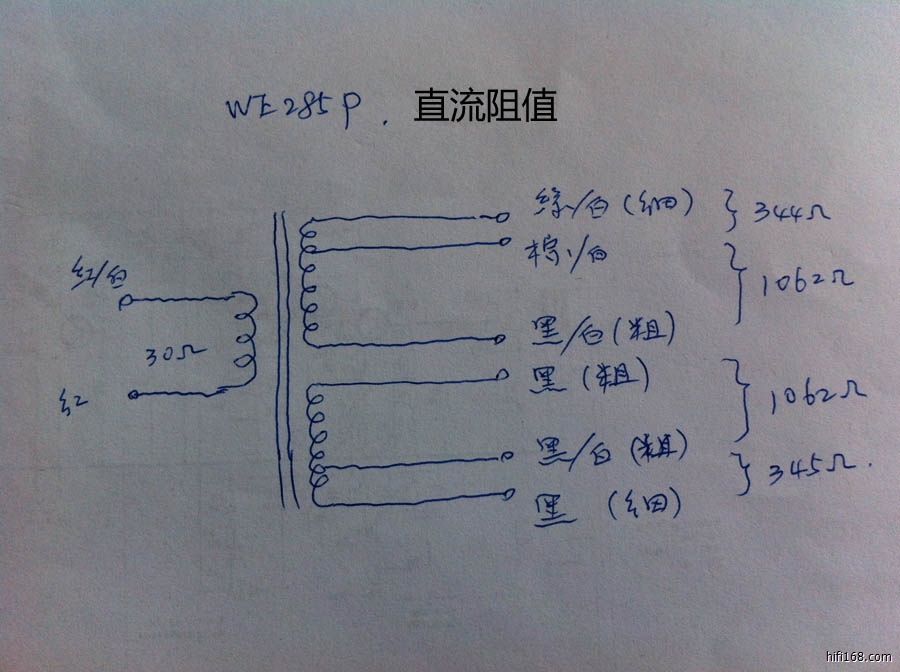 WE285P. 直流阻值
綠/白(细)
344Ω
棕/白
1062Ω
红/白
黑/白(粗)
30Ω
黑(粗)
红
1062Ω
黑/白(粗)
345Ω.
黑(细)
hifi168.com